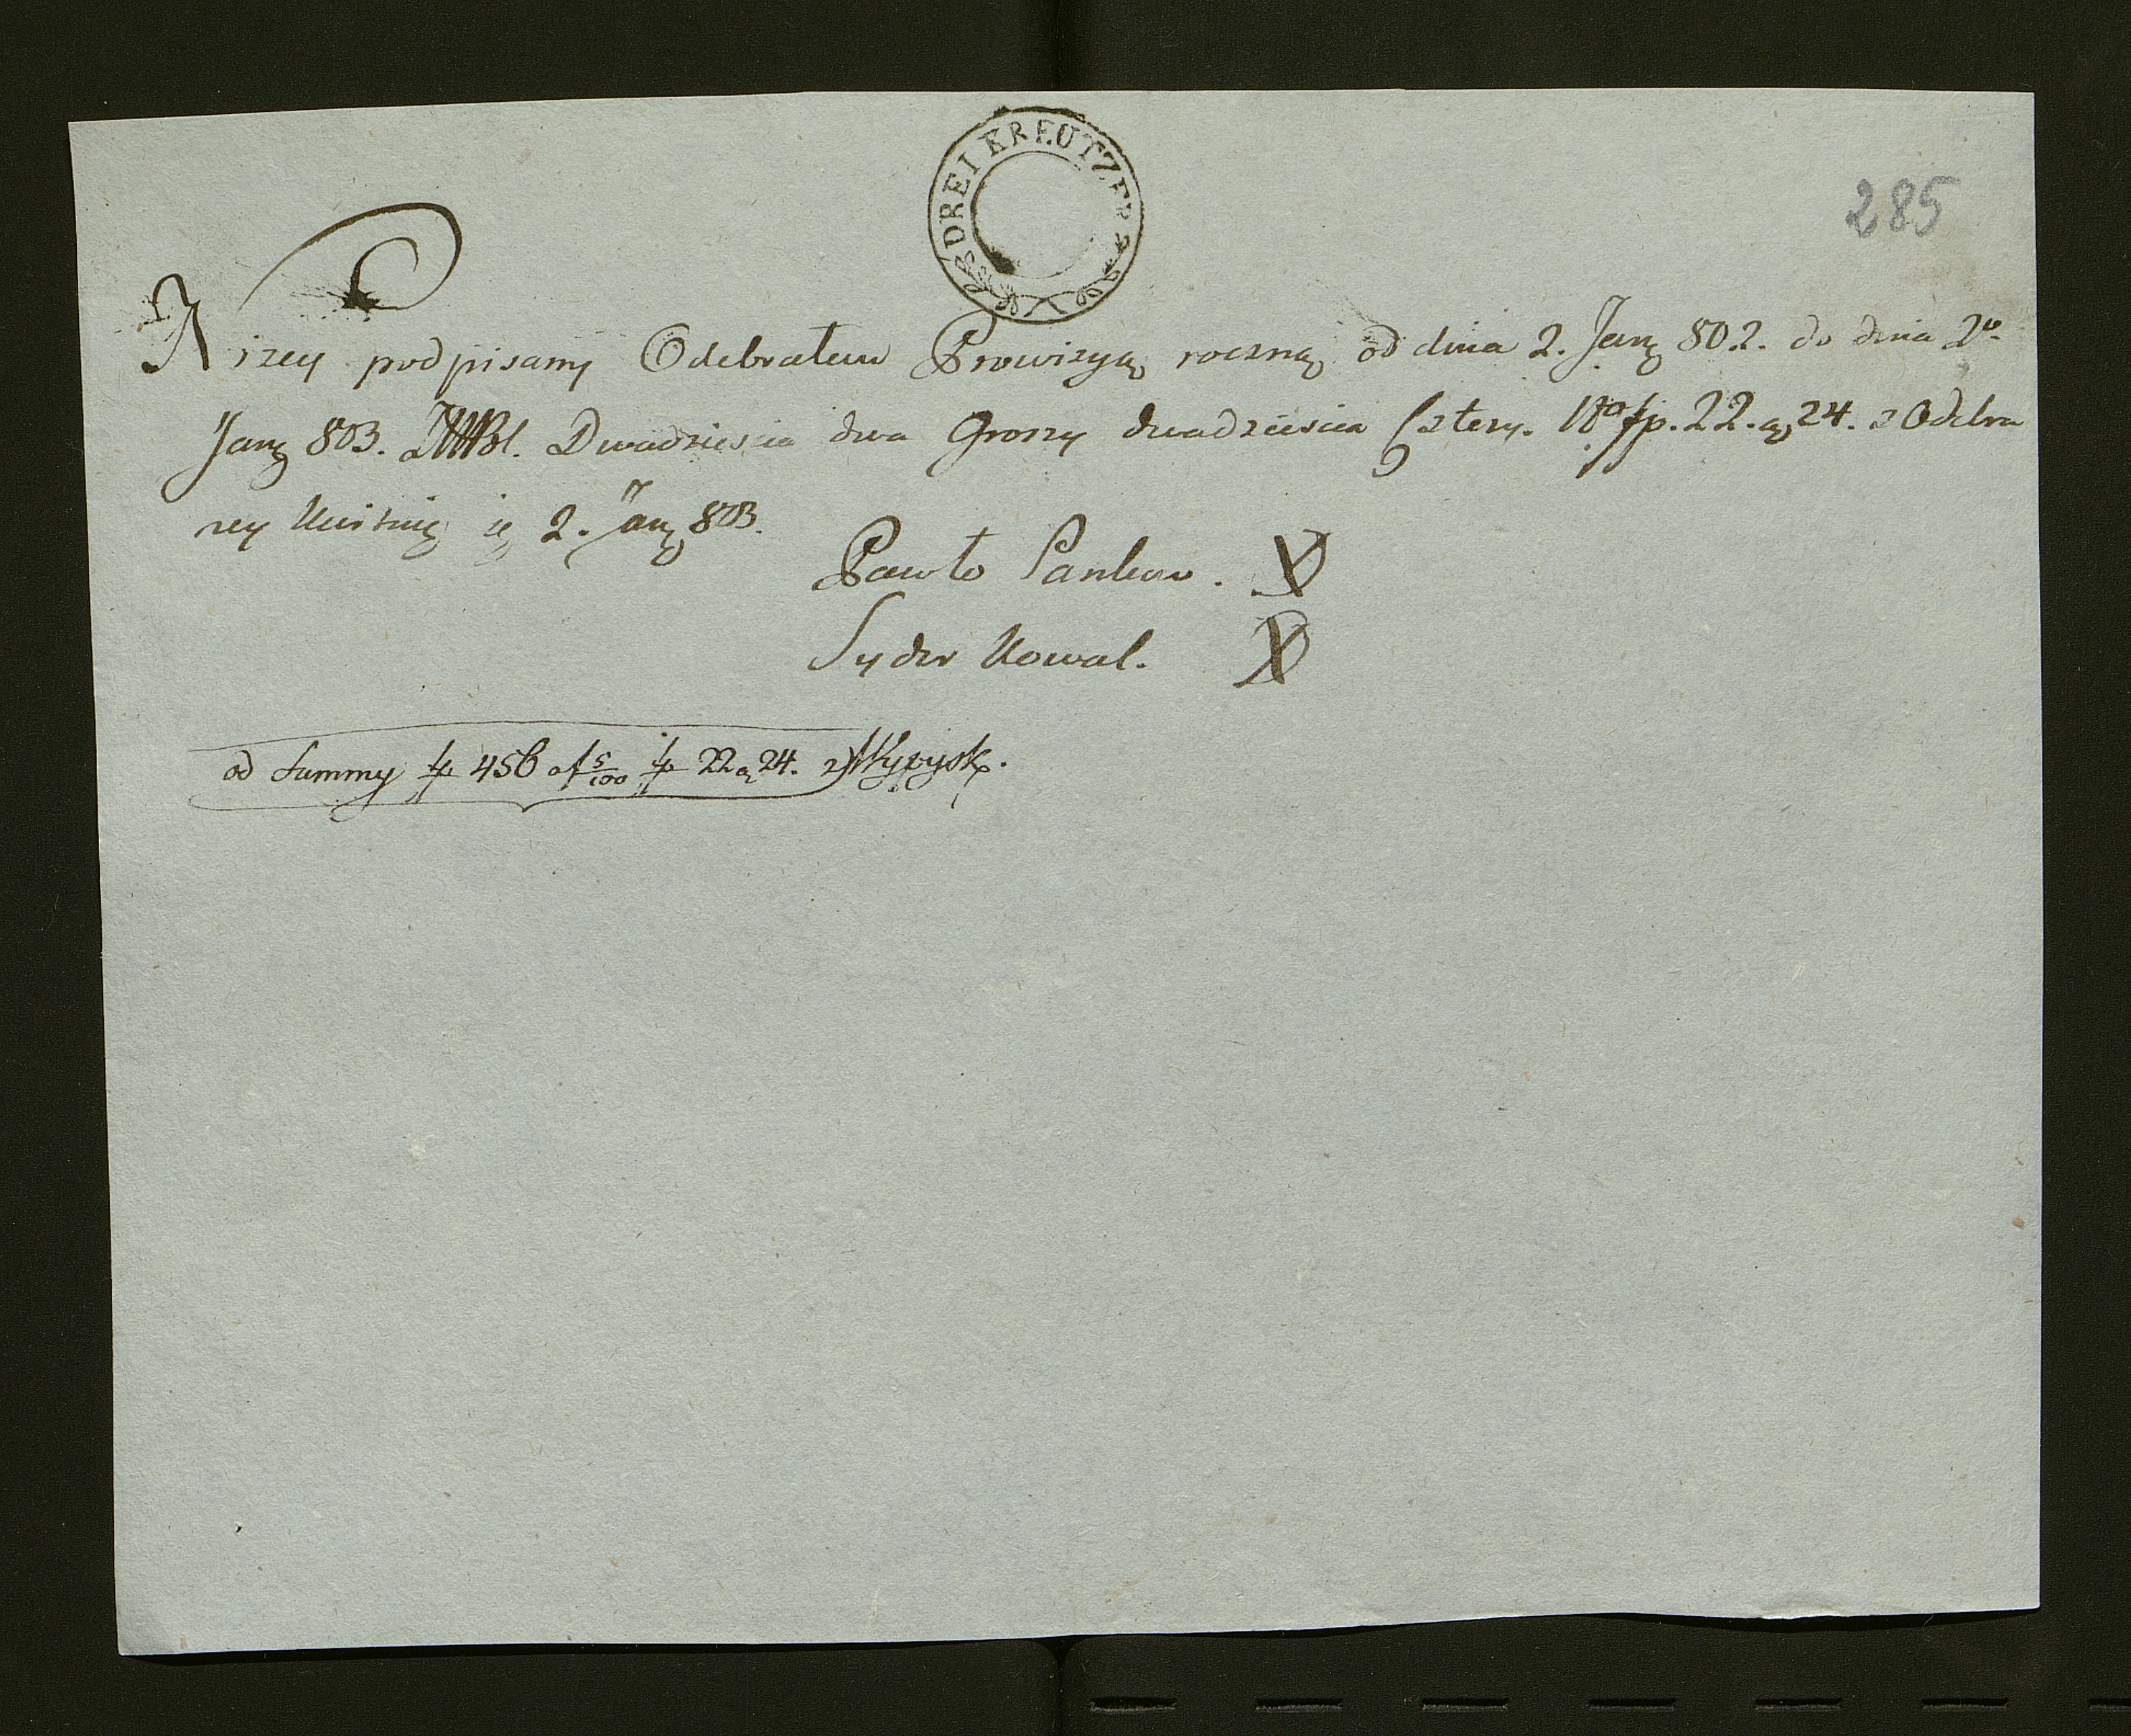 DREI KREUTZER
285
Nizey podpisany Odebrałem Prowizyą roczną od dnia 2. Jany 802. do dnia 2o
Jany 803. Dwadziescia dwa Groszy dwadziescia Cztery. No fp. 22. g 24. z Odebra
ney Kwituię ię 2. Jany 803.
Pawło Pankow. X
Sydor Kowal. X
od Summy fp 456 a 5/100 fp 22 g 24.